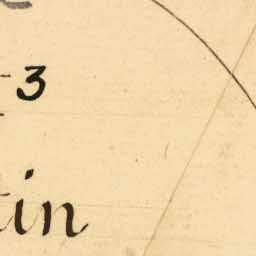 3
tin